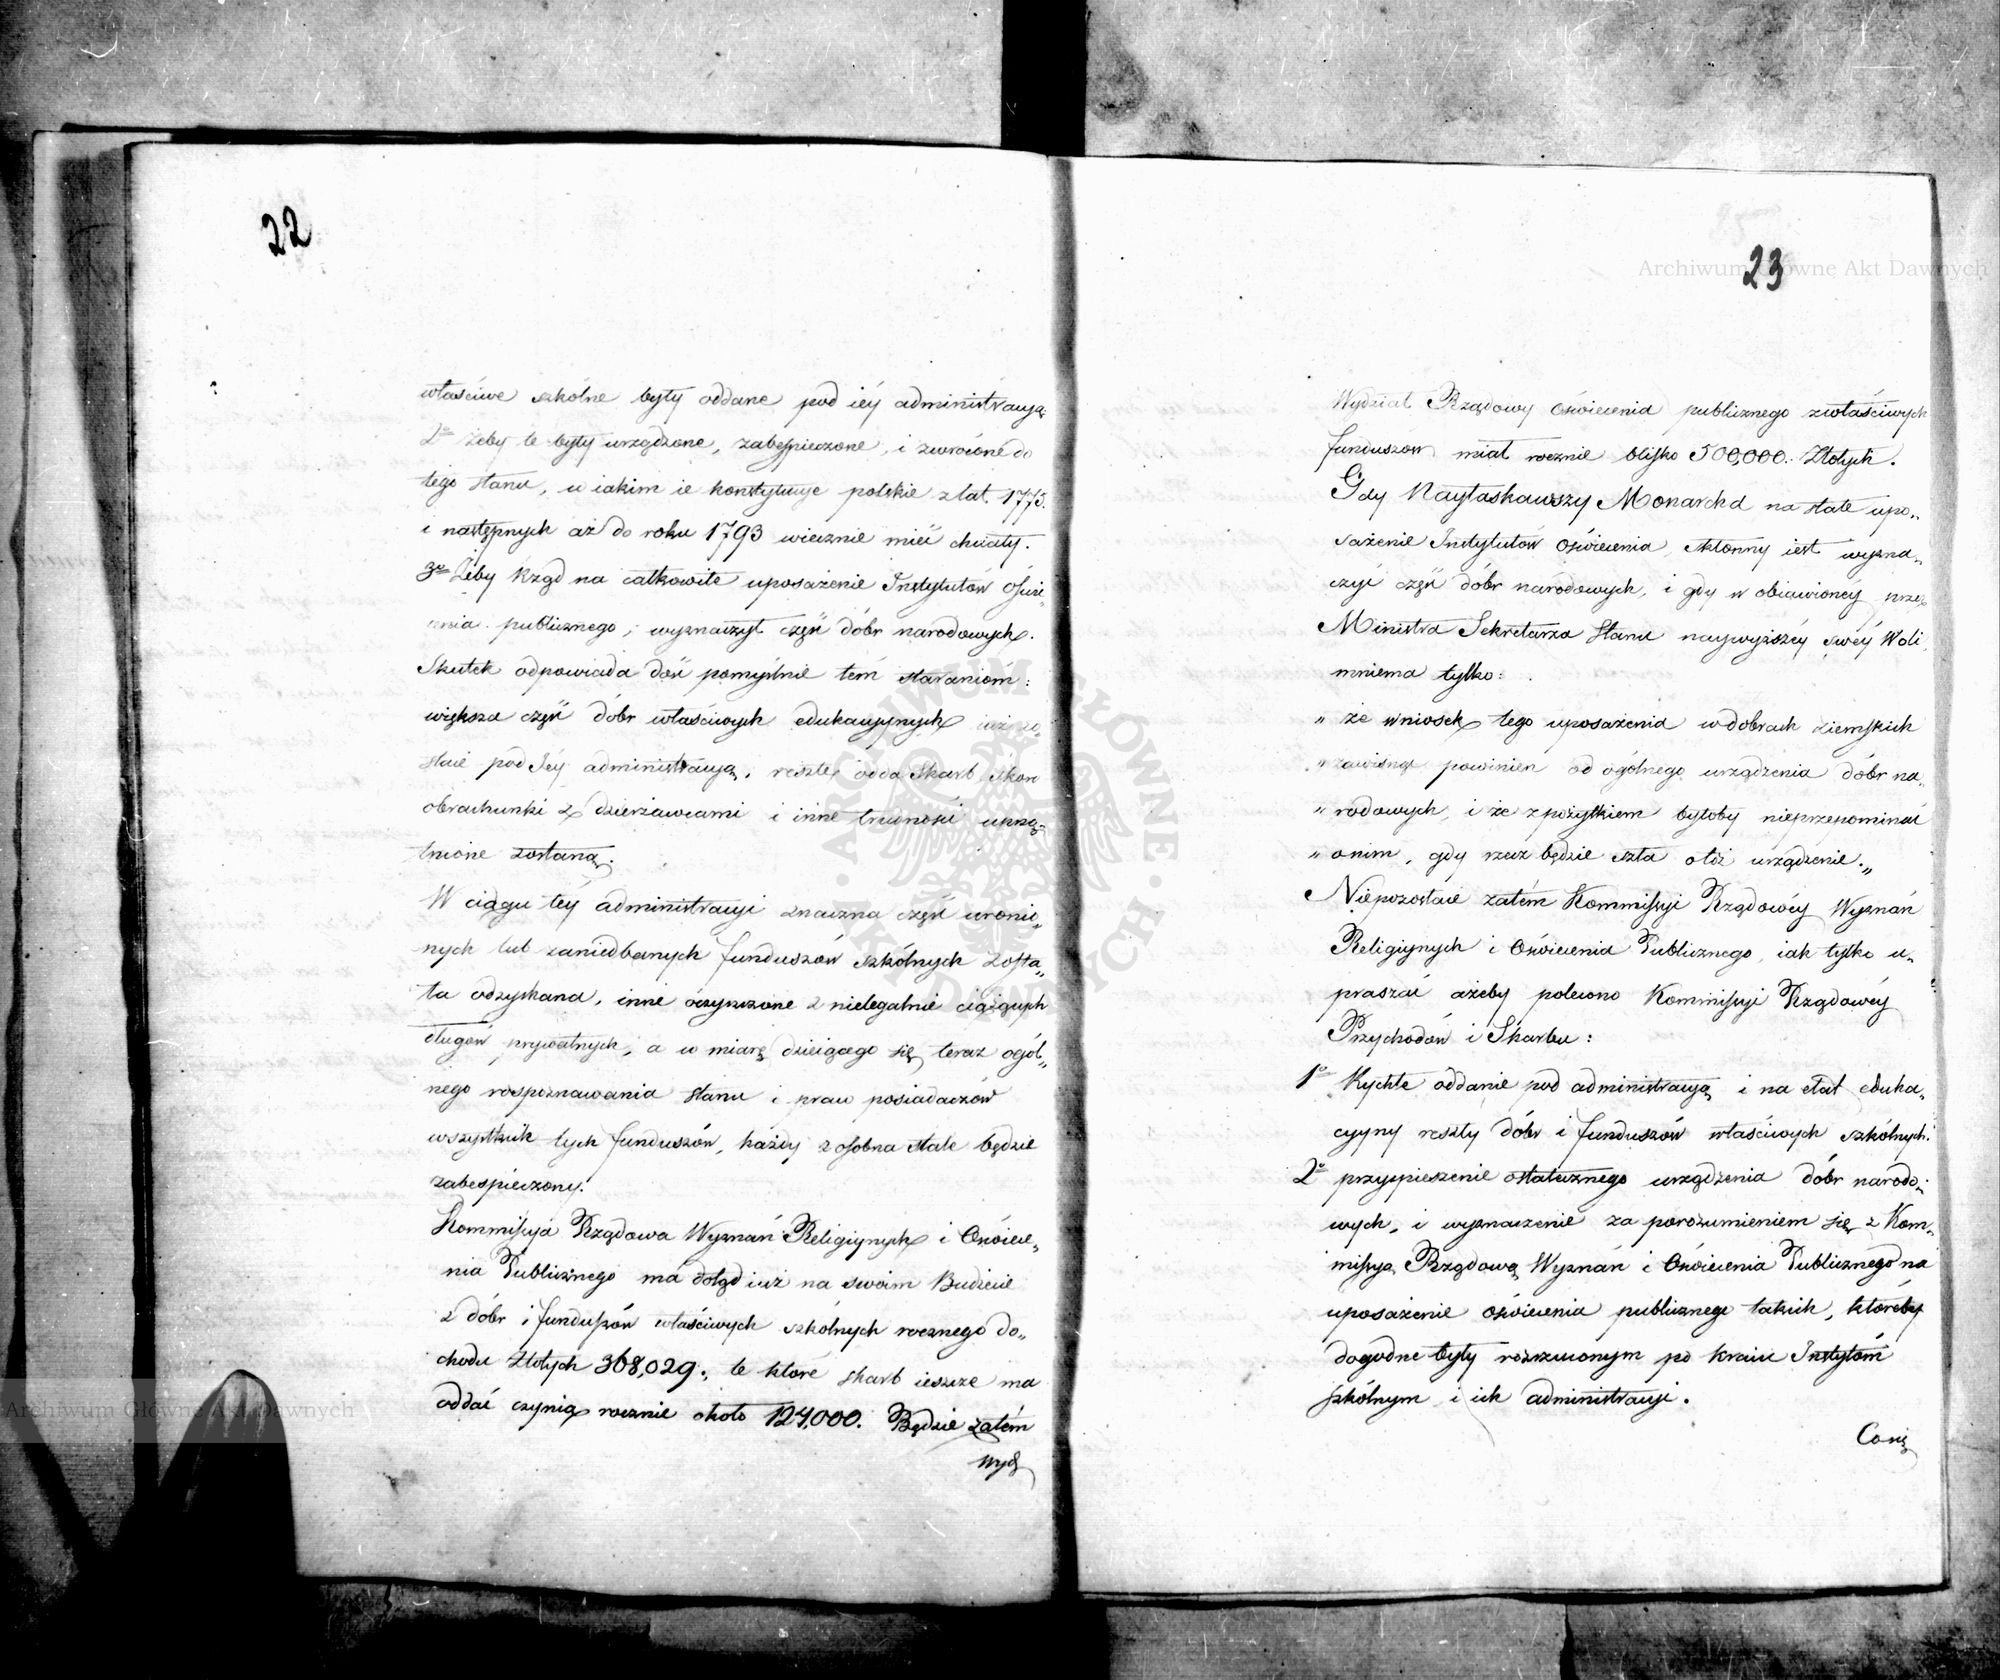 22
właściwe szkólne były oddane pod iéy administracyą.
2o żeby te były urządzone, zabespieczone, i zwrócone do
tego stanu, w iakim ie konstytucye polskie z lat 1775.
i następnych aż do roku 1793 wiecznie mieć chciały.
3o Żeby Rząd na całkowite uposażenie Instytutów Oświe„
cenia publicznego, wyznaczył część dóbr narodowych.
Skutek odpowiada dość pomyślnie tém staraniom:
większa część dóbr właściwych edukacyinych iuż zo„
staie pod Iéy administracyą, resztę odda Skarb skoro
obrachunki z dzierżawcami i inne trudności uprzą„
tnione zostaną.
W ciągu téy administracyi znaczna część uronio„
nych lub zaniedbanych funduszów szkólnych zosta„
ła odzyskana, inne oczyszczone z nielegalnie ciążących
długów prywatnych, a w miarę dzieiącego się teraz ogól„
nego rospoznawania stanu i praw posiadaczów
wszystkich tych funduszów, każdy z osobna stale będzie
zabespieczony.
Kommissya Rządowa Wyznań Religiynych i Oświece„
nia Publicznego má dotąd iuż na swoim Budżecie
z dóbr i funduszów właściwych szkólnych rocznego do„
chodu Złotych 368,029., te które skarb ieszcze ma
oddać czynią rocznie około 124,000. Będzie zatém
Wydz
23
Wydział Rządowy Oświecenia publicznego z właściwych
funduszów miał rocznie blisko 500,000. Złotych.
Gdy Nayłaskawszy Monarcha na stałe upo„
sażenie Instytutów Oświecenia, skłonny iest wyzna„
czyć część dóbr narodowych, i gdy w obiawionéy przez
Ministra Sekretarza Stanu naywyższéy swéy Woli,
mniema tylko:
„ że wniosek tego uposażenia w dobrach ziemskich
„ zawisnąć powinien od ogólnego urządzenia dóbr na„
„ rodowych, i że z pożytkiem byłoby nieprzepominać
„ o nim, gdy rzecz będzie szła o toż urządzenie.„
Niepozostaie zatém Kommissyi Rządowéy Wyznań
Religiynych i Oświecenia Publicznego, iak tylko u„
praszać ażeby polecono Kommissyi Rządowéy
Przychodów i Skarbu:
1o Rychłe oddanie pod administracyą i na etat eduka„
cyyny reszty dóbr i funduszów właściwych szkólnych.
2o przyspieszenie ostatecznego urządzenia dóbr narodo„
wych, i wyznaczenie za porozumieniem się z Kom„
missyą Rządową Wyznań i Oświecenia Publicznego na
uposażenie oświecenia publicznego takich, któreby
dogodne były rozrzuconym po kraiu Instytóm
szkólnym i ich administracyi.
Conię